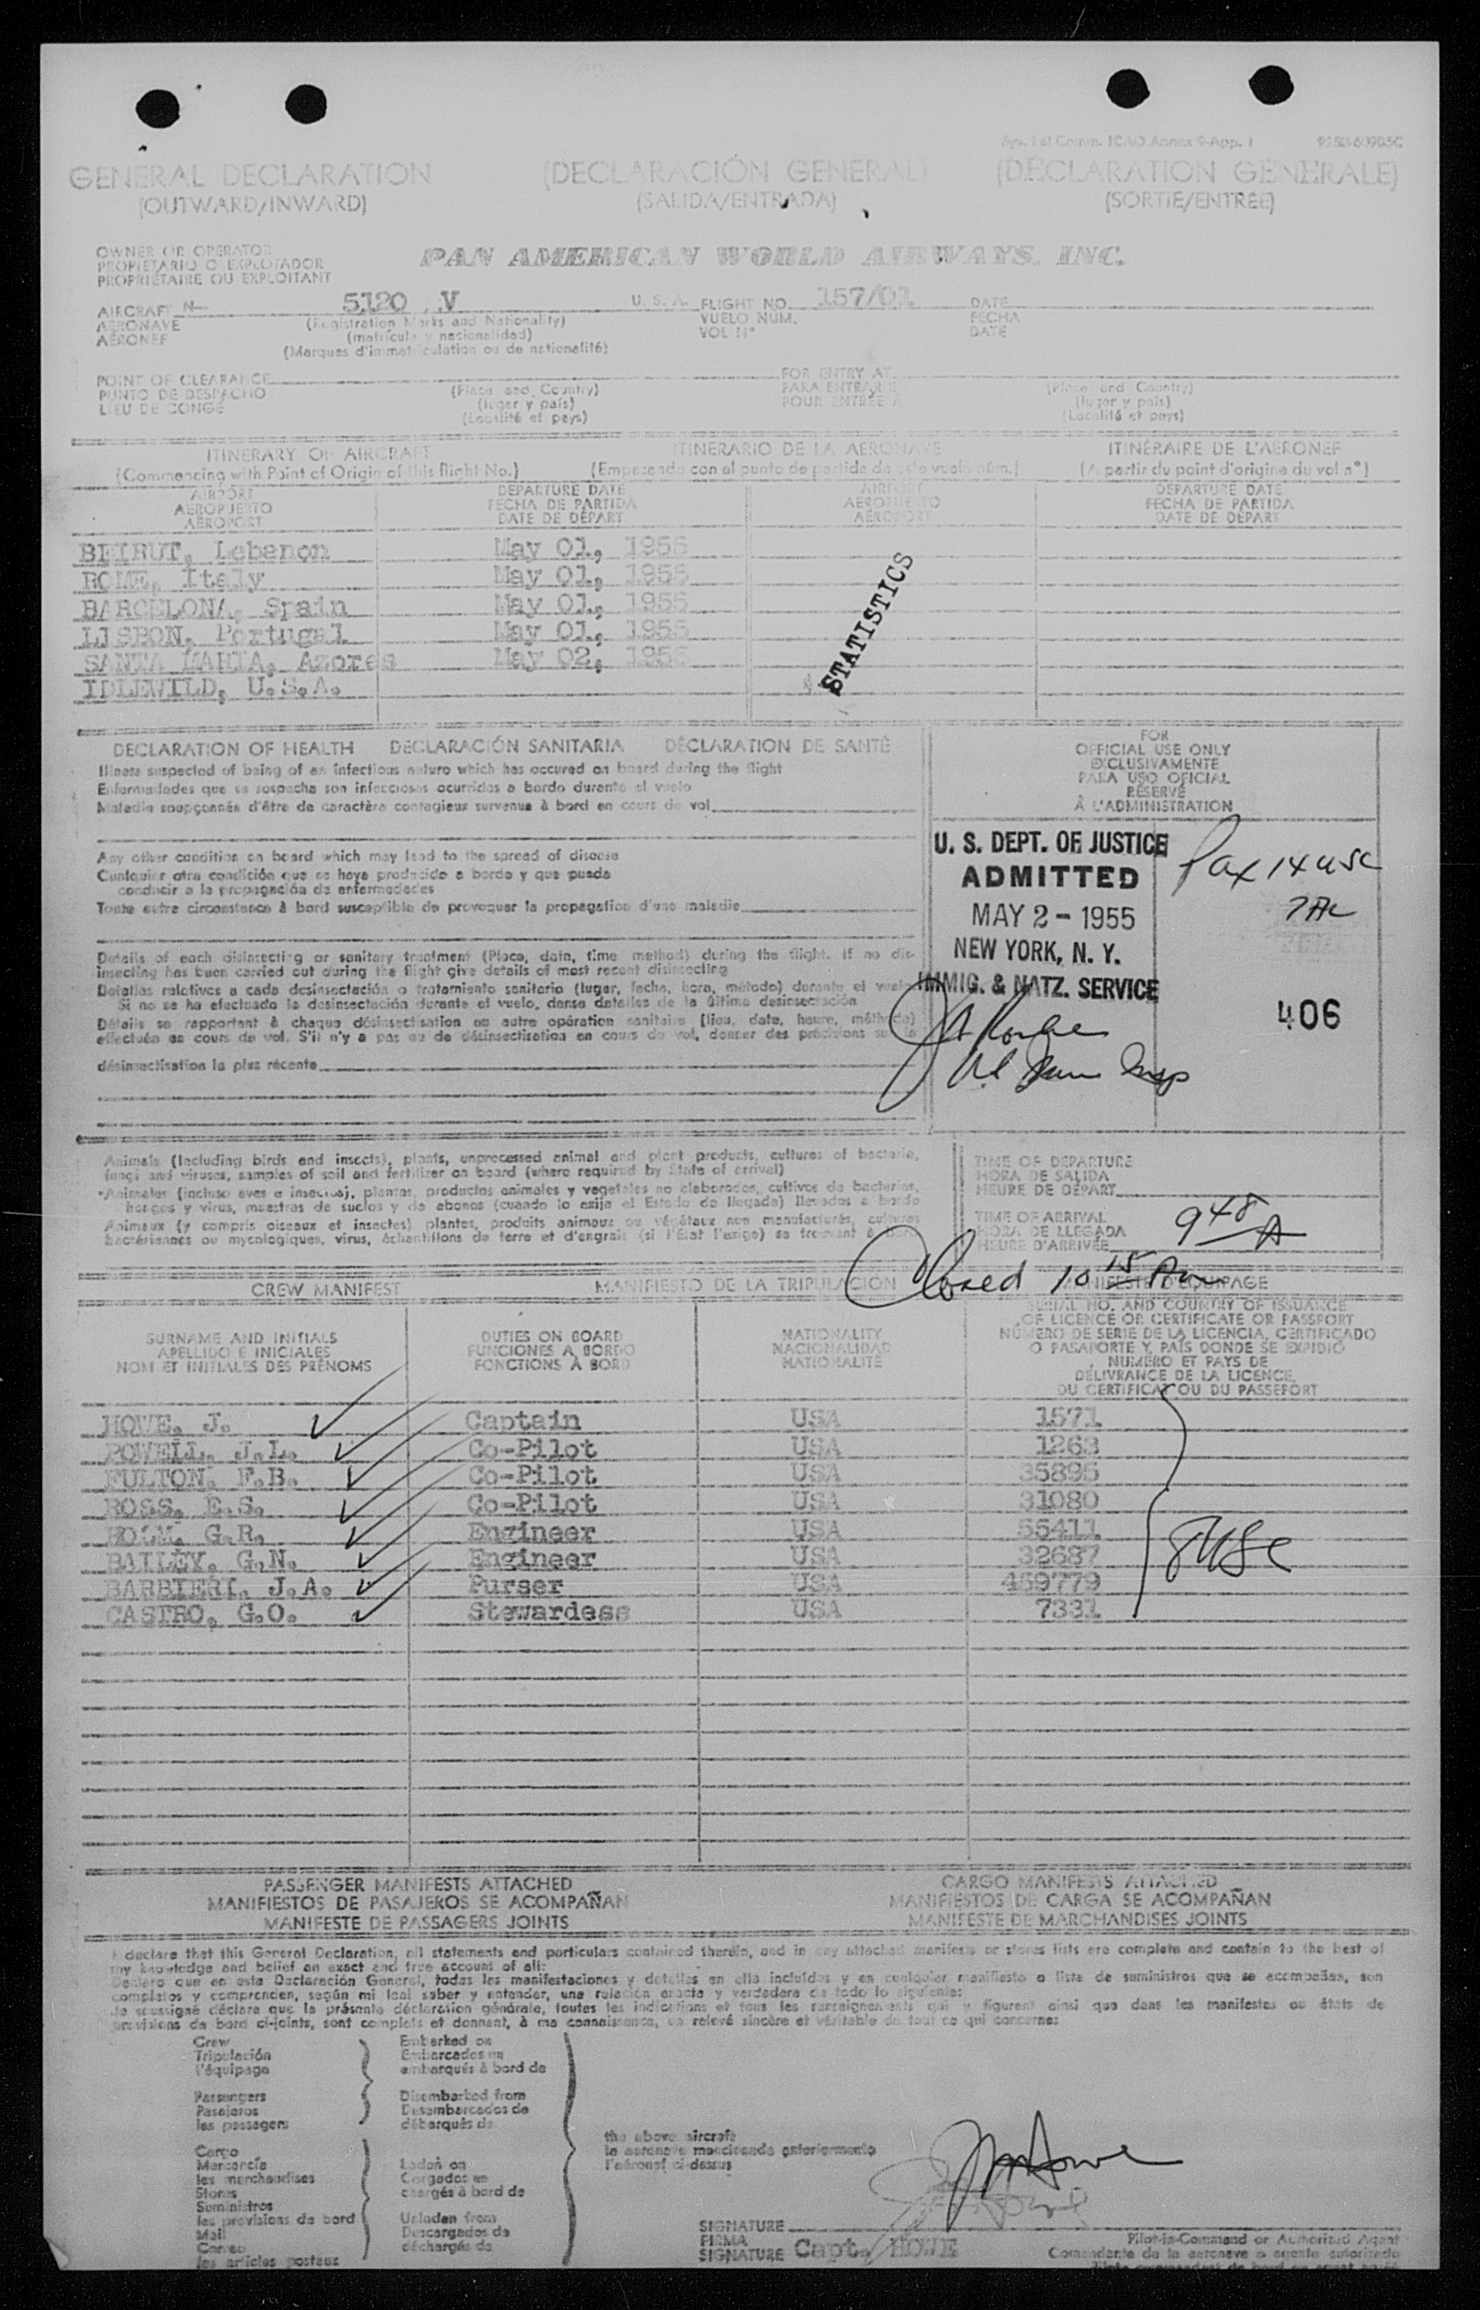 Ap. I al Comm. ICAO Annex 9-App. 1
GENERAL DECLARATION (DECLARACIÓN GENERAL) (DÉCLARATION GÉNÉRALE)
(OUTWARD/INWARD) (SALIDA/ENTRADA) (SORTIE/ENTRÉE)
OWNER OR OPERATOR
PROPIETARIO O EXPLOTADOR
PROPRIÉTAIRE OU EXPLOITANT
PAN AMERICAN WORLD AIRWAYS, INC.
AIRCRAFT N- 5120 V U. S. A. FLIGHT NO. 157/01 DATE
AERONAVE (Registration Marks and Nationality) VUELO NÚM. FECHA
AÉRONEF (matrícula y nacionalidad) VOL Nº DATE
(Marques d'immatriculation ou de nationalité)
POINT OF CLEARANCE FOR ENTRY AT
PUNTO DE DESPACHO (Place and Country) PARA ENTRAR E (Place and Country)
LIEU DE CONGÉ (lugar y país) POUR ENTRÉE À (lugar y país)
(Localité et pays) (Localité et pays)
ITINERARY OF AIRCRAFT ITINERARIO DE LA AERONAVE ITINÉRAIRE DE L'AÉRONEF
(Commencing with Point of Origin of this flight No.) (Empezando con el punto de partida de este vuelo núm.) (A partir du point d'origine du vol nº)
AIRPORT DEPARTURE DATE AIRPORT DEPARTURE DATE
AEROPUERTO FECHA DE PARTIDA AEROPUERTO FECHA DE PARTIDA
AÉROPORT DATE DE DÉPART AÉROPORT DATE DE DÉPART
BEIRUT, Lebanon May 01, 1955
ROME, Italy May 01, 1955
BARCELONA, Spain May 01, 1955
LISBON, Portugal May 01, 1955
SANTA MARIA, Azores May 02, 1955
IDLEWILD, U.S.A.
STATISTICS
DECLARATION OF HEALTH DECLARACIÓN SANITARIA DÉCLARATION DE SANTÉ
Illness suspected of being of an infectious nature which has occured on board during the flight
Enfermedades que se sospecha son infecciosas ocurridas a bordo durante el vuelo
Maladie soupçonnés d'être de caractère contagieux survenue à bord en cours de vol
Any other condition on board which may lead to the spread of disease
Cualquier otra condición que se haya producido a bordo y que pueda
conducir a la propagación de enfermedades
Toute autre circonstance à bord susceptible de provoquer la propagation d'une maladie
Details of each disinsecting or sanitary treatment (Place, date, time method) during the flight. If no dis-
insecting has been carried out during the flight give details of most recent disinsecting
Detalles relativos a cada desinsectación o tratamiento sanitario (lugar, fecha, hora, método) durante el vuelo
Si no se ha efectuado la desinsectación durante el vuelo, dense detalles de la última desinsectación
Détails se rapportant à chaque désinsectisation ou autre opération sanitaire (lieu, date, heure, méthode)
effectuée au cours de vol. S'il n'y a pas eu de désinsectisation en cours de vol, donner des précisions sur la
désinsectisation la plus récente
FOR
OFFICIAL USE ONLY
EXCLUSIVAMENTE
PARA USO OFICIAL
RÉSERVÉ
À L'ADMINISTRATION
U. S. DEPT. OF JUSTICE
ADMITTED
MAY 2 - 1955
NEW YORK, N. Y.
IMMIG. & NATZ. SERVICE
Pax 14 USC
7 AL
406
Animals (including birds and insects), plants, unprocessed animal and plant products, cultures of bacteria,
fungi and viruses, samples of soil and fertilizer on board (where required by State of arrival)
Animales (incluso aves e insectos), plantas, productos animales y vegetales no elaborados, cultivos de bacterias,
hongos y virus, muestras de suelos y de abonos (cuando lo exija el Estado de llegada) llevados a bordo
Animaux (y compris oiseaux et insectes) plantes, produits animaux ou végétaux non manufacturés, cultures
bactériennes ou mycologiques, virus, échantillons de terre et d'engrais (si l'État l'exige) se trouvant à bord
TIME OF DEPARTURE
HORA DE SALIDA
HEURE DE DÉPART
TIME OF ARRIVAL
HORA DE LLEGADA
HEURE D'ARRIVÉE
9 48 A
Closed 10 15 Am
CREW MANIFEST MANIFIESTO DE LA TRIPULACIÓN MANIFESTE D'ÉQUIPAGE
SURNAME AND INITIALS
APELLIDO E INICIALES
NOM ET INITIALES DES PRÉNOMS
DUTIES ON BOARD
FUNCIONES A BORDO
FONCTIONS À BORD
NATIONALITY
NACIONALIDAD
NATIONALITÉ
SERIAL NO. AND COUNTRY OF ISSUANCE
OF LICENCE OR CERTIFICATE OR PASSPORT
NÚMERO DE SERIE DE LA LICENCIA, CERTIFICADO
O PASAPORTE Y PAÍS DONDE SE EXPIDIÓ
NUMÉRO ET PAYS DE
DÉLIVRANCE DE LA LICENCE,
DU CERTIFICAT OU DU PASSEPORT
HOWE, J. Captain USA 1571
POWELL, J.L. Co-Pilot USA 1263
FULTON, F.B. Co-Pilot USA 35895
ROSS, E.S. Co-Pilot USA 31080
HOLM, G.R. Engineer USA 55411
BAILEY, G.N. Engineer USA 32687
BARBIERI, J.A. Purser USA 459779
CASTRO, G.O. Stewardess USA 7331
8 USC
PASSENGER MANIFESTS ATTACHED CARGO MANIFESTS ATTACHED
MANIFIESTOS DE PASAJEROS SE ACOMPAÑAN MANIFIESTOS DE CARGA SE ACOMPAÑAN
MANIFESTE DE PASSAGERS JOINTS MANIFESTE DE MARCHANDISES JOINTS
I declare that this General Declaration, all statements and particulars contained therein, and in any attached manifests or stores lists are complete and contain to the best of
my knowledge and belief an exact and true account of all:
Declaro que en esta Declaración General, todas las manifestaciones y detalles en ella incluidos y en cualquier manifiesto o lista de suministros que se acompañan, son
completos y comprenden, según mi leal saber y entender, una relación exacta y verdadera de todo lo siguiente:
Je soussigné déclare que la présente déclaration générale, toutes les indications et tous les renseignements qui y figurent ainsi que dans les manifestes ou états de
provisions de bord ci-joints, sont complets et donnent, à ma connaissance, un relevé sincère et véritable de tout ce qui concerne:
Crew Embarked on
Tripulación Embarcados en
l'équipage embarqués à bord de
Passengers Disembarked from
Pasajeros Desembarcados de
les passagers débarqués de
the above aircraft
la aeronave mencionada anteriormente
l'aéronef ci-dessus
Cargo
Mercancía Laden on
les marchandises Cargados en
Stores chargés à bord de
Suministros
les provisions de bord Unladen from
Mail Descargados de
Correo déchargés de
les articles postaux
SIGNATURE
FIRMA
SIGNATURE Capt. HOWE
Pilot-in-Command or Authorized Agent
Comandante de la aeronave o agente autorizado